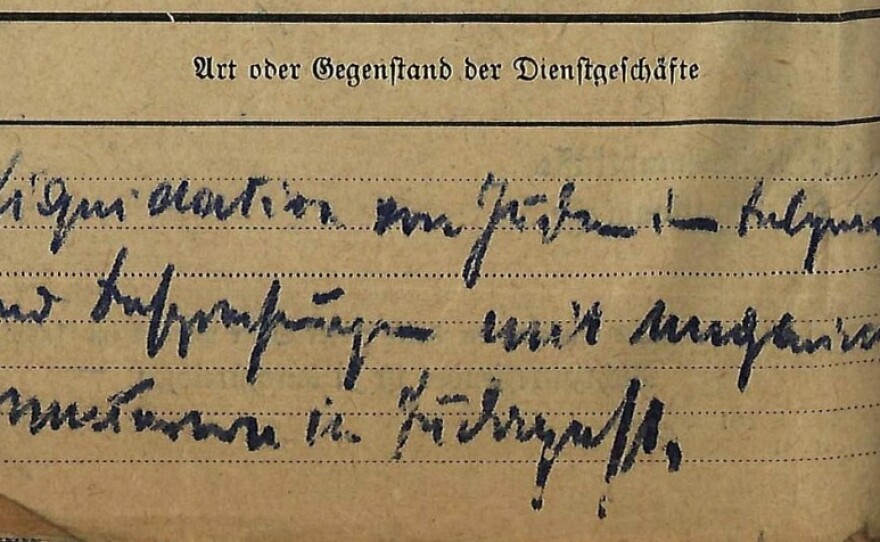 Art oder Gegenstand der Dienstgeschäfte
Liquidation von Juden in Belgrad
nd Besprechungen mit ungarisch
in Budapest.